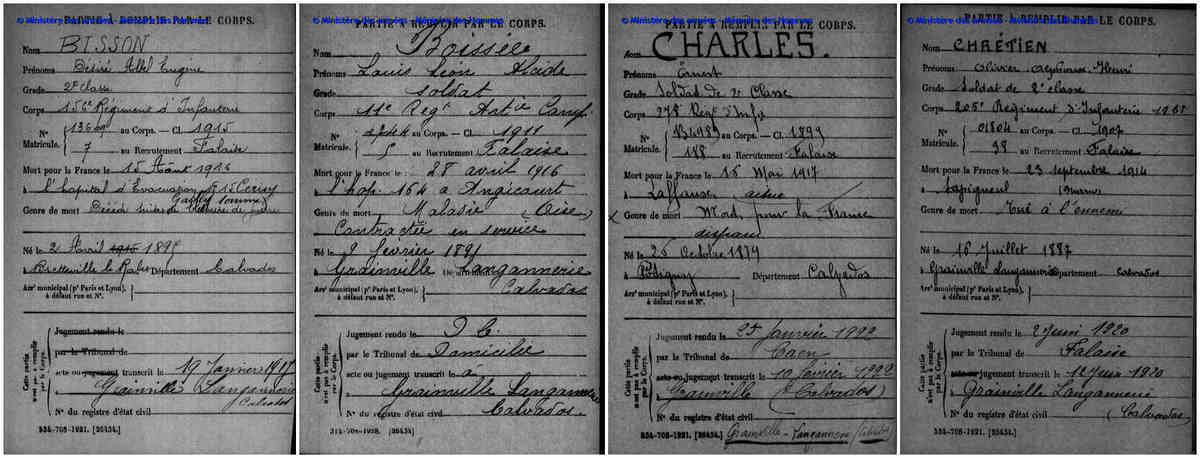 © Ministère des armées - Mémoire des Hommes
PARTIE À REMPLIR PAR LE CORPS.
Nom BISSON
Prénoms Désiré Abel Eugène
Grade 2e classe
Corps 156e Régiment d'Infanterie
N° Matricule. au Corps. — Cl. 1915
7 au Recrutement Falaise
Mort pour la France le 15 Août 1916
à l'hôpital d'Evacuation N°15 Cerisy
Gailly Somme
Genre de mort Décédé suites de blessures de guerre
Né le 2 Avril 1915 189
à Bretteville le Rabet Département Calvados
Arrt municipal (pr Paris et Lyon), à défaut rue et N°.
Cette partie n'est pas à remplir par le Corps.
Jugement rendu le
par le Tribunal de
acte ou jugement transcrit le 19 Janvier 1917
à Grainville Langannerie
Calvados
N° du registre d'état civil
534-708-1921. [26434.]
© Ministère des armées - Mémoire des Hommes
PARTIE À REMPLIR PAR LE CORPS.
Nom Boissée
Prénoms Louis Léon Alcide
Grade soldat
Corps 11e Regt Artie Camp.
N° Matricule. au Corps. — Cl. 1911
5 au Recrutement Falaise
Mort pour la France le 28 avril 1916
à l'hop. 164 à Angicourt
(Oise)
Genre de mort Maladie
Contractée en service
Né le 9 février 1891
à Grainville Langannerie Département
Calvados
Arrt municipal (pr Paris et Lyon), à défaut rue et N°.
Cette partie n'est pas à remplir par le Corps.
Jugement rendu le D C.
par le Tribunal de Domicilié
acte ou jugement transcrit le à
à Grainville Langannerie
Calvados.
N° du registre d'état civil
[26434.]
© Ministère des armées - Mémoire des Hommes
PARTIE À REMPLIR PAR LE CORPS.
Nom CHARLES.
Prénoms Ernest
Grade Soldat de 2e Classe
Corps 278 Regt d'Infie
N° Matricule. 13498 au Corps. — Cl. 1899
118 au Recrutement Falaise
Mort pour la France le 16 Mai 1917
à Laffaux aisne
Genre de mort Mort pour la France
disparu
Né le 26 Octobre 1879
à Potigny Département Calvados
Arrt municipal (pr Paris et Lyon), à défaut rue et N°.
Cette partie n'est pas à remplir par le Corps.
Jugement rendu le 25 Janvier 1922
par le Tribunal de Caen
acte ou jugement transcrit le 10 février 1922
à Grainville (Calvados)
N° du registre d'état civil
534-708-1921. [26434.] Grainville-Langannerie (Calvados)
© Ministère des armées - Mémoire des Hommes
PARTIE À REMPLIR PAR LE CORPS.
Nom CHRÉTIEN
Prénoms Olivier Alphonse Henri
Grade Soldat de 2e classe
Corps 205e Régiment d'Infanterie
N° Matricule. 01804 au Corps. — Cl. 1907
98 au Recrutement Falaise
Mort pour la France le 23 septembre 1914
à Sapigneul (Marne)
Genre de mort Tué à l'ennemi
Né le 16 Juillet 1887
à Grainville Langannerie Département Calvados
Arrt municipal (pr Paris et Lyon), à défaut rue et N°.
Cette partie n'est pas à remplir par le Corps.
Jugement rendu le 2 juin 1920
par le Tribunal de Falaise
acte ou jugement transcrit le 12 juin 1920
à Grainville Langannerie
(Calvados)
N° du registre d'état civil
534-708-1921. [26434.]